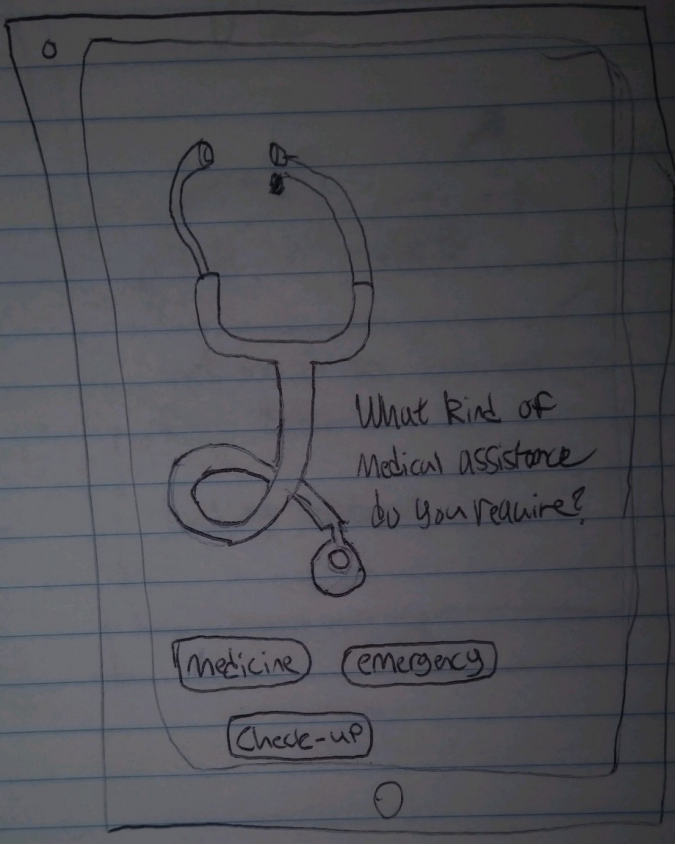 What kind of
Medical assistance
do you require?
medicine
emergency
Check-up